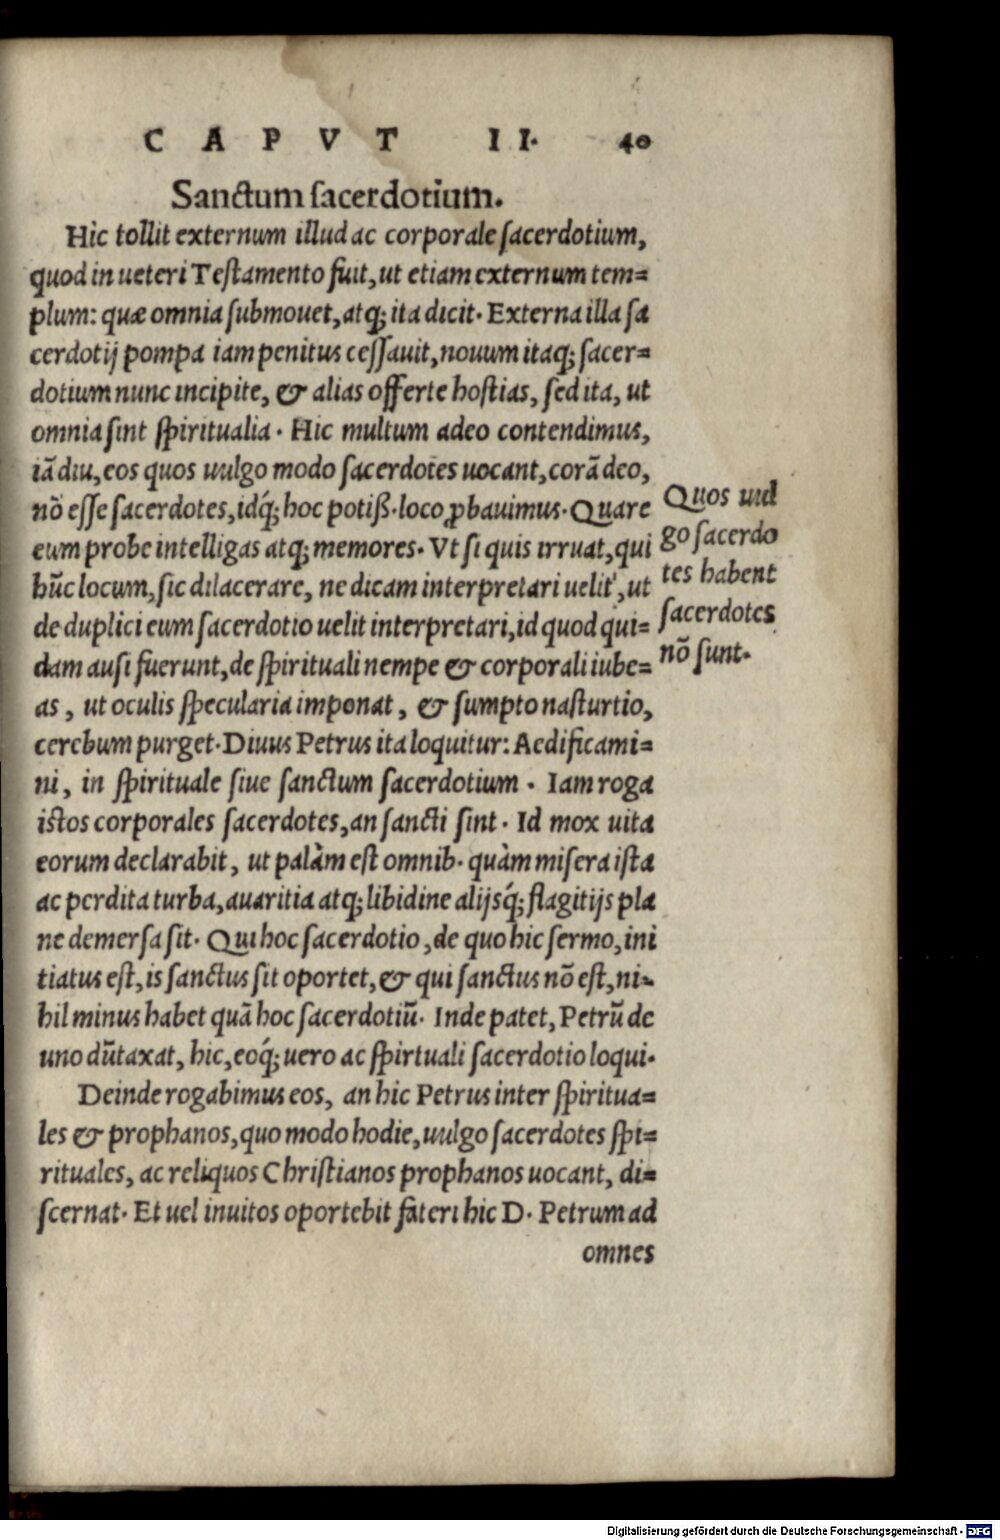 CAPVT II. 40
Sanctum sacerdotium.
Hic tollit externum illud ac corporale sacerdotium,
quod in ueteri Testamento fuit, ut etiam externum tem=
plum: quæ omnia submouet, atq; ita dicit. Externa illa sa
cerdotij pompa iam penitus cessauit, nouum itaq; sacer=
dotium nunc incipite, & alias offerte hostias, sed ita, ut
omnia sint spiritualia. Hic multum adeo contendimus,
iā diu, eos quos uulgo modo sacerdotes uocant, corā deo,
nō esse sacerdotes, idq́; hoc potiß. loco ꝓbauimus. Quare
eum probe intelligas atq; memores. Vt si quis irruat, qui
hūc locum, sic dilacerare, ne dicam interpretari uelit, ut
de duplici eum sacerdotio uelit interpretari, id quod qui=
dam ausi fuerunt, de spirituali nempe & corporali iube=
as, ut oculis specularia imponat, & sumpto nasturtio,
cerebum purget. Diuus Petrus ita loquitur: Aedificami=
ni, in spirituale siue sanctum sacerdotium. Iam roga
istos corporales sacerdotes, an sancti sint. Id mox uita
eorum declarabit, ut palàm est omnib. quàm misera ista
ac perdita turba, auaritia atq; libidine alijsq́; flagitijs pla
ne demersa sit. Qui hoc sacerdotio, de quo hic sermo, ini
tiatus est, is sanctus sit oportet, & qui sanctus nō est, ni=
hil minus habet quā hoc sacerdotiū. Inde patet, Petrū de
uno dūtaxat, hic, eoq́; uero ac spirtuali sacerdotio loqui.
Deinde rogabimus eos, an hic Petrus inter spiritua=
les & prophanos, quo modo hodie, uulgo sacerdotes spi=
rituales, ac reliquos Christianos prophanos uocant, di=
scernat. Et uel inuitos oportebit fateri hic D. Petrum ad
omnes
Quos uul
go sacerdo
tes habent
sacerdotes
nō sunt.
Digitalisierung gefördert durch die Deutsche Forschungsgemeinschaft - DFG